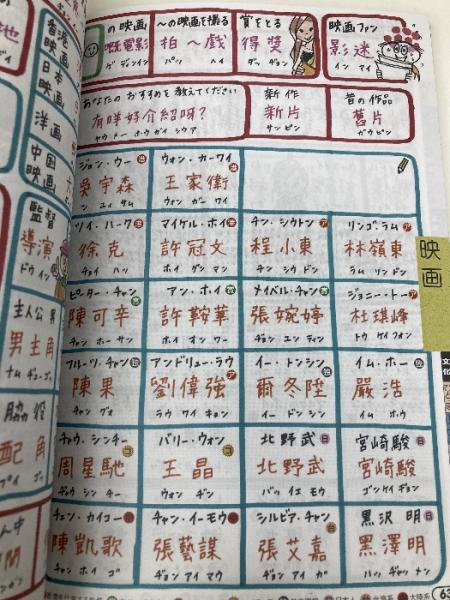 の映画
〜の映画を撮る
賞をとる
映画ファン
嘅電影
拍〜戲
得獎
影迷
ゲ ディンイン
パッ ヘイ
ダッ ヂョン
イン マイ
あなたのおすすめを教えてください
新作
昔の作品
有咩好介紹呀?
新片
舊片
ヤウ メー ホウ ガイ シウ ア
サン ピン
ガウ ピン
香港映画
日本映画
洋画
中国映画
監督
導演
ドウ イン
主人公 男
男主角
ナム ヂュー ゴ
脇役
配角
プイ ゴ
ジョン・ウー
ウォン・カーワイ
吳宇森
王家衛
ン ユイ サム
ウォン ガー ワイ
ツイ・ハーク
マイケル・ホイ
チン・シウトン
リンゴ・ラム
徐克
許冠文
程小東
林嶺東
チョイ ハッ
ホイ グン マン
チン シウ ドン
ラム リン ドン
ピーター・チャン
アン・ホイ
メイベル・チャン
ジョニー・トー
陳可辛
許鞍華
張婉婷
杜琪峰
チャン ホー サン
ホイ オン ワー
トウ ケイ フォン
フルーツ・チャン
アンドリュー・ラウ
イー・トンシン
イム・ホー
陳果
劉偉強
爾冬陞
嚴浩
チャン グォ
ラウ ワイ キョン
イー ドン シン
イム ホウ
チャウ・シンチー
バリー・ウォン
北野武
宮崎駿
周星馳
王晶
北野武
宮崎駿
ヂャウ シン チー
ウォン ヂン
バッ イェ モウ
ゴン ケイ ヂョン
チェン・カイコー
チャン・イーモウ
シルビア・チャン
黒沢明
陳凱歌
張藝謀
張艾嘉
黑澤明
チャン ホイ ゴ
ヂョン アイ マウ
ヂョン アイ ガー
ハッ ヂャッ メン
映画
文化
63